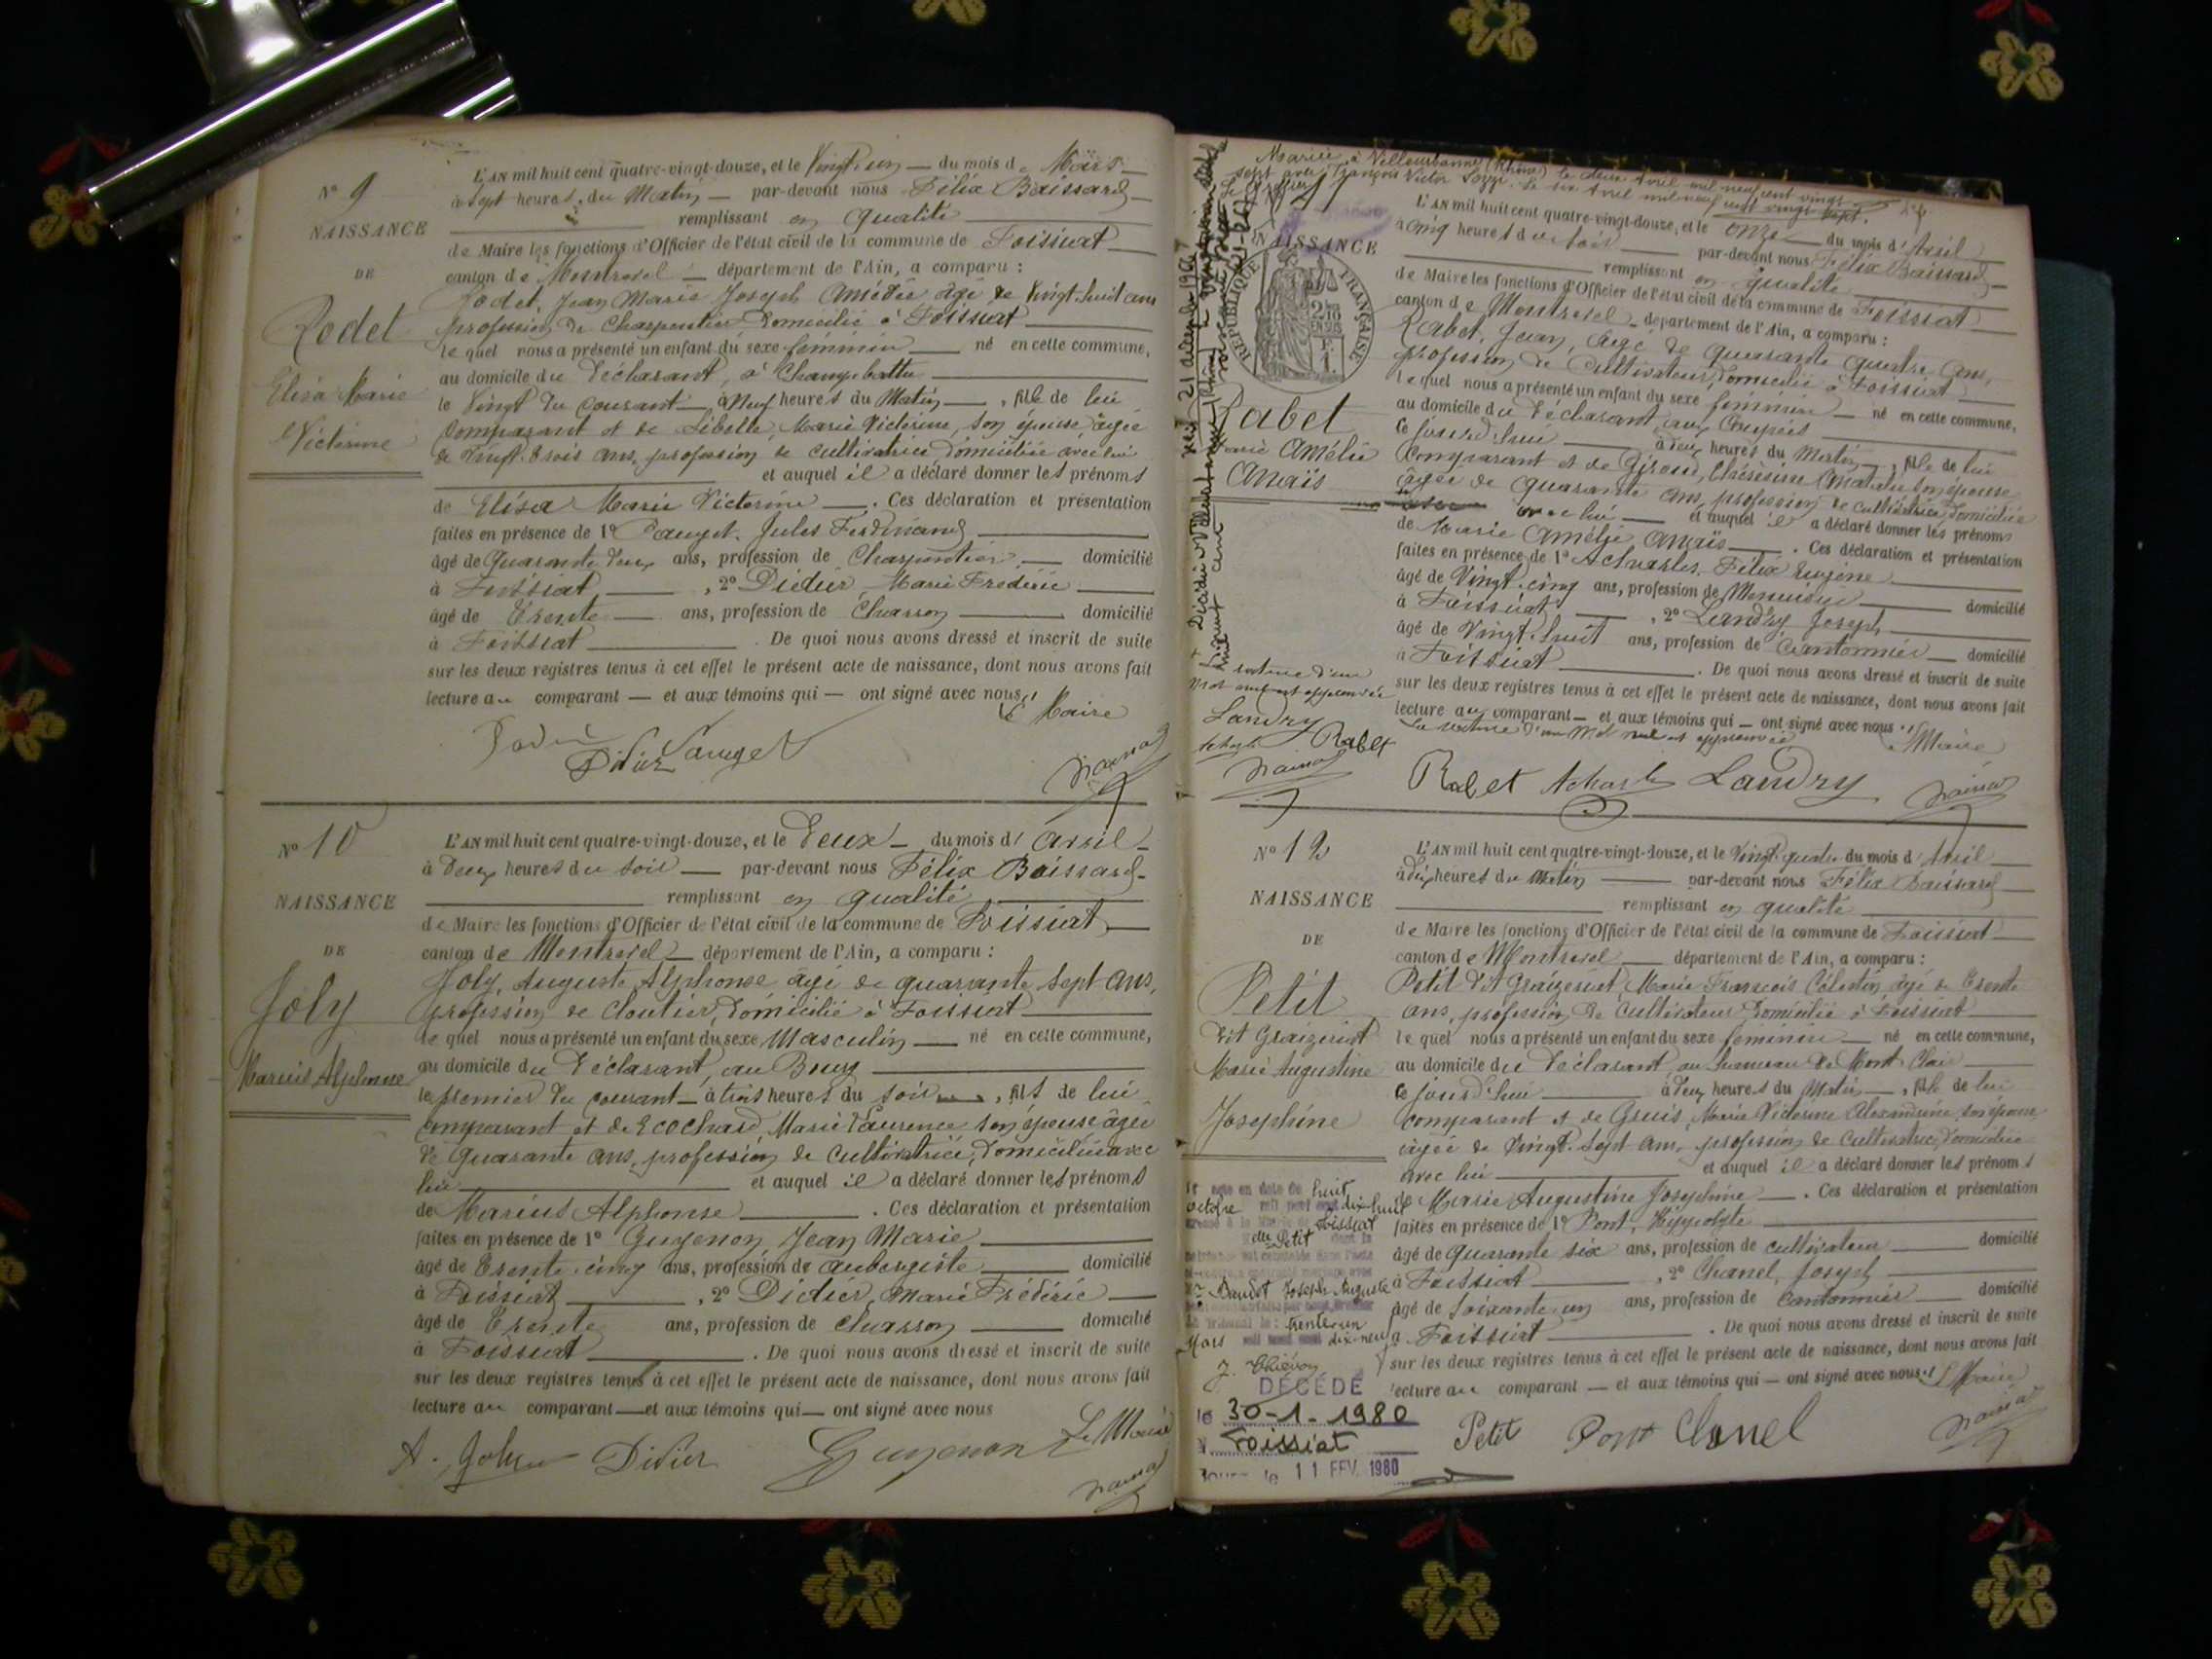 N° 9
NAISSANCE
DE
Rodet
Elisa Marie
Victorine
L'AN mil huit cent quatre-vingt-douze, et le Vingt un du mois de Mars
à Sept heures du Matin par-devant nous Félix Baissard
remplissant en qualité
de Maire les fonctions d'Officier de l'état civil de la commune de Foissiat
canton de Montrevel département de l'Ain, a comparu :
Rodet, Jean Marie Joseph Amédée âgé de Vingt-huit ans
profession de Charpentier domicilié à Foissiat
lequel nous a présenté un enfant du sexe féminin né en cette commune,
au domicile du déclarant, à
le Vingt du courant à Neuf heures du Matin, fille de lui
comparant et de Marie Victorine, son épouse âgée
de Vingt-trois ans, profession de cultivatrice domiciliée avec lui
et auquel il a déclaré donner les prénoms
de Elisa Marie Victorine. Ces déclaration et présentation
faites en présence de 1° Jules Ferdinand
âgé de Quarante deux ans, profession de Charpentier domicilié
à Foissiat, 2° Didier, Marie Frédéric
âgé de Trente ans, profession de Charron domicilié
à Foissiat. De quoi nous avons dressé et inscrit de suite
sur les deux registres tenus à cet effet le présent acte de naissance, dont nous avons fait
lecture au comparant et aux témoins qui ont signé avec nous
Le Maire
Didier
N° 10
NAISSANCE
DE
Joly
Marius Alphonse
L'AN mil huit cent quatre-vingt-douze, et le Deux du mois d'Avril
à Deux heures du Soir par-devant nous Félix Baissard
remplissant en qualité
de Maire les fonctions d'Officier de l'état civil de la commune de Foissiat
canton de Montrevel département de l'Ain, a comparu :
Joly, Auguste Alphonse âgé de quarante sept ans,
profession de Cloutier, domicilié à Foissiat
lequel nous a présenté un enfant du sexe Masculin né en cette commune,
au domicile du Déclarant, au Bourg
le premier du courant à trois heures du soir, fils de lui
comparant et de Ecochard, Marie Laurence son épouse âgée
de quarante ans, profession de cultivatrice, domiciliée avec
lui et auquel il a déclaré donner les prénoms
de Marius Alphonse. Ces déclaration et présentation
faites en présence de 1° Guyenon, Jean Marie
âgé de Trente-cinq ans, profession de aubergiste domicilié
à Foissiat, 2° Didier, Marie Frédéric
âgé de Trente ans, profession de charron domicilié
à Foissiat. De quoi nous avons dressé et inscrit de suite
sur les deux registres tenus à cet effet le présent acte de naissance, dont nous avons fait
lecture au comparant et aux témoins qui ont signé avec nous
Le Maire
A. Joly Didier Guyenon
Mariée à Villeurbanne (Rhône) le deux Avril mil neuf cent vingt
sept avec François Victor Le six Avril mil neuf cent vingt sept.
NAISSANCE
RÉPUBLIQUE FRANÇAISE
Rabet
Marie Amélie
Anaïs
L'AN mil huit cent quatre-vingt-douze, et le onze du mois d'Avril
à cinq heures du soir par-devant nous Félix Baissard
remplissant en qualité
de Maire les fonctions d'Officier de l'état civil de la commune de Foissiat
canton de Montrevel département de l'Ain, a comparu :
Rabet, Jean, âgé de quarante quatre ans,
profession de Cultivateur, domicilié à Foissiat
lequel nous a présenté un enfant du sexe féminin né en cette commune,
au domicile du déclarant, aux
ce jourd'hui à deux heures du Matin, fille de lui
comparant et de son épouse
âgée de quarante ans, profession de cultivatrice, domiciliée
avec lui et auquel il a déclaré donner les prénoms
de Marie Amélie Anaïs. Ces déclaration et présentation
faites en présence de 1° Félix Eugène
âgé de Vingt-cinq ans, profession de Menuisier domicilié
à Foissiat, 2° Landry Joseph
âgé de Vingt-huit ans, profession de Cantonnier domicilié
à Foissiat. De quoi nous avons dressé et inscrit de suite
sur les deux registres tenus à cet effet le présent acte de naissance, dont nous avons fait
lecture au comparant et aux témoins qui ont signé avec nous
La rature d'un mot nul est approuvée
Maire
Landry
Rabet
Rabet Landry
N° 12
NAISSANCE
DE
Petit
Marie Augustine
Josephine
L'AN mil huit cent quatre-vingt-douze, et le Vingt-quatre du mois d'Avril
à dix heures du Matin par-devant nous Félix Baissard
remplissant en qualité
de Maire les fonctions d'Officier de l'état civil de la commune de Foissiat
canton de Montrevel département de l'Ain, a comparu :
Petit dit Marie François Célestin âgé de Trente
ans, profession de Cultivateur domicilié à Foissiat
lequel nous a présenté un enfant du sexe féminin né en cette commune,
au domicile du Déclarant, au hameau de
ce jourd'hui à deux heures du Matin, fille de lui
comparant et de Marie Victorine Alexandrine, son épouse
âgée de Vingt-sept ans, profession de Cultivatrice, domiciliée
avec lui et auquel il a déclaré donner les prénoms
de Marie Augustine Josephine. Ces déclaration et présentation
faites en présence de 1° Pont, Hippolyte
âgé de Quarante six ans, profession de cultivateur domicilié
à Foissiat, 2° Chanel, Joseph
âgé de Soixante un ans, profession de Cantonnier domicilié
à Foissiat. De quoi nous avons dressé et inscrit de suite
sur les deux registres tenus à cet effet le présent acte de naissance, dont nous avons fait
lecture au comparant et aux témoins qui ont signé avec nous
Le Maire
DÉCÉDÉ
le 30-1-1980
Foissiat
le 11 FEV. 1980
Petit Pont Chanel